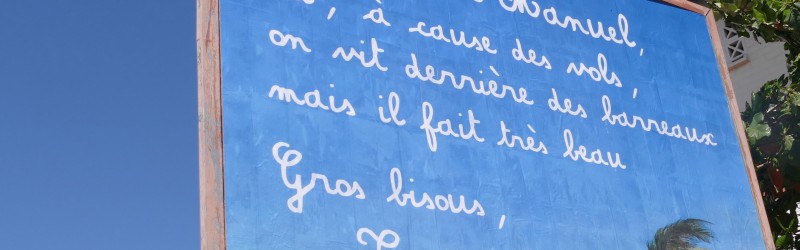 Manuel,
, à cause des vols,
on vit derrière des barreaux
mais il fait très beau
Gros bisous,